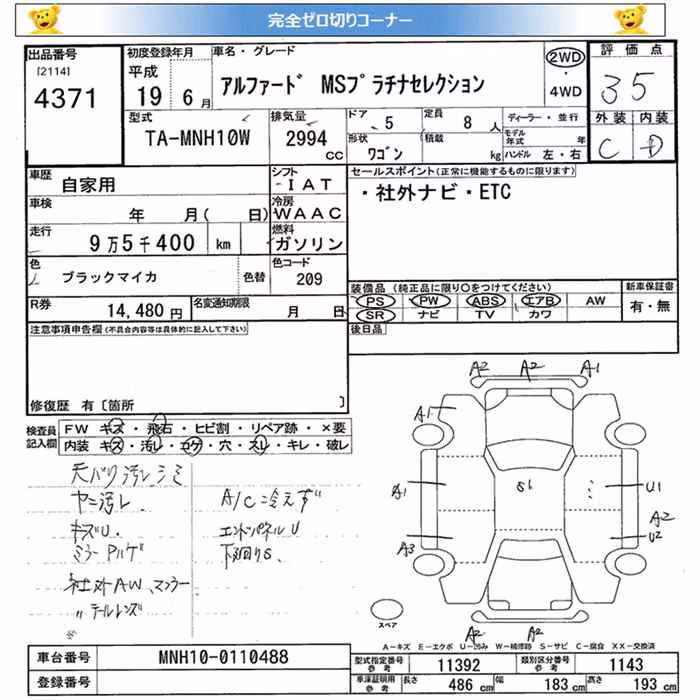 完全ゼロ切りコーナー
出品番号
[2114]
4371
初度登録年月
平成
19年 6月
車名・グレード
アルファード MSプラチナセレクション
2WD
・
4WD
評価点
35
外装 内装
C D
型式
TA-MNH10W
排気量
2994
CC
ドア 5
定員 8人
形状
ワゴン
積載
kg
ディーラー・並行
モデル年式 年
ハンドル 左・右
車歴 自家用
シフト
IAT
車検 年 月( 日)
冷房
WAAC
走行
9万5千400 km
燃料
ガソリン
色 ブラックマイカ
色替
色コード
209
R券 14,480円
名変通知期限 月 日
セールスポイント(正常に機能するものに限ります)
・社外ナビ・ETC
装備品(純正品に限り○をつけてください)
PS PW ABS エアB AW
SR ナビ TV カワ
新車保証書
有・無
後日品
注意事項申告欄(不具合内容等は具体的に記入して下さい)
修復歴 有〔箇所 〕
検査員記入欄
FW キズ・飛石・ヒビ割・リペア跡・×要
内装 キズ・汚レ・コゲ・穴・スレ・キレ・破レ
天バリ汚レシミ
ヤニ汚レ
キズU.
ミラーPハゲ
社外AW、マフラー
〃テールレンズ
※
A/C冷えず
エンドパネルU
下廻りS、
A2 A2 A1
A1
A1 S1 U1
A2
A3 U2
A2 A2
スペア
A-キズ E-エクボ U-凹み W-補修跡 S-サビ C-腐食 XX-交換済
車台番号 MNH10-0110488
登録番号
型式指定番号参考 11392
類別区分番号参考 1143
車庫証明用参考 長さ 486cm 幅 183cm 高さ 193cm